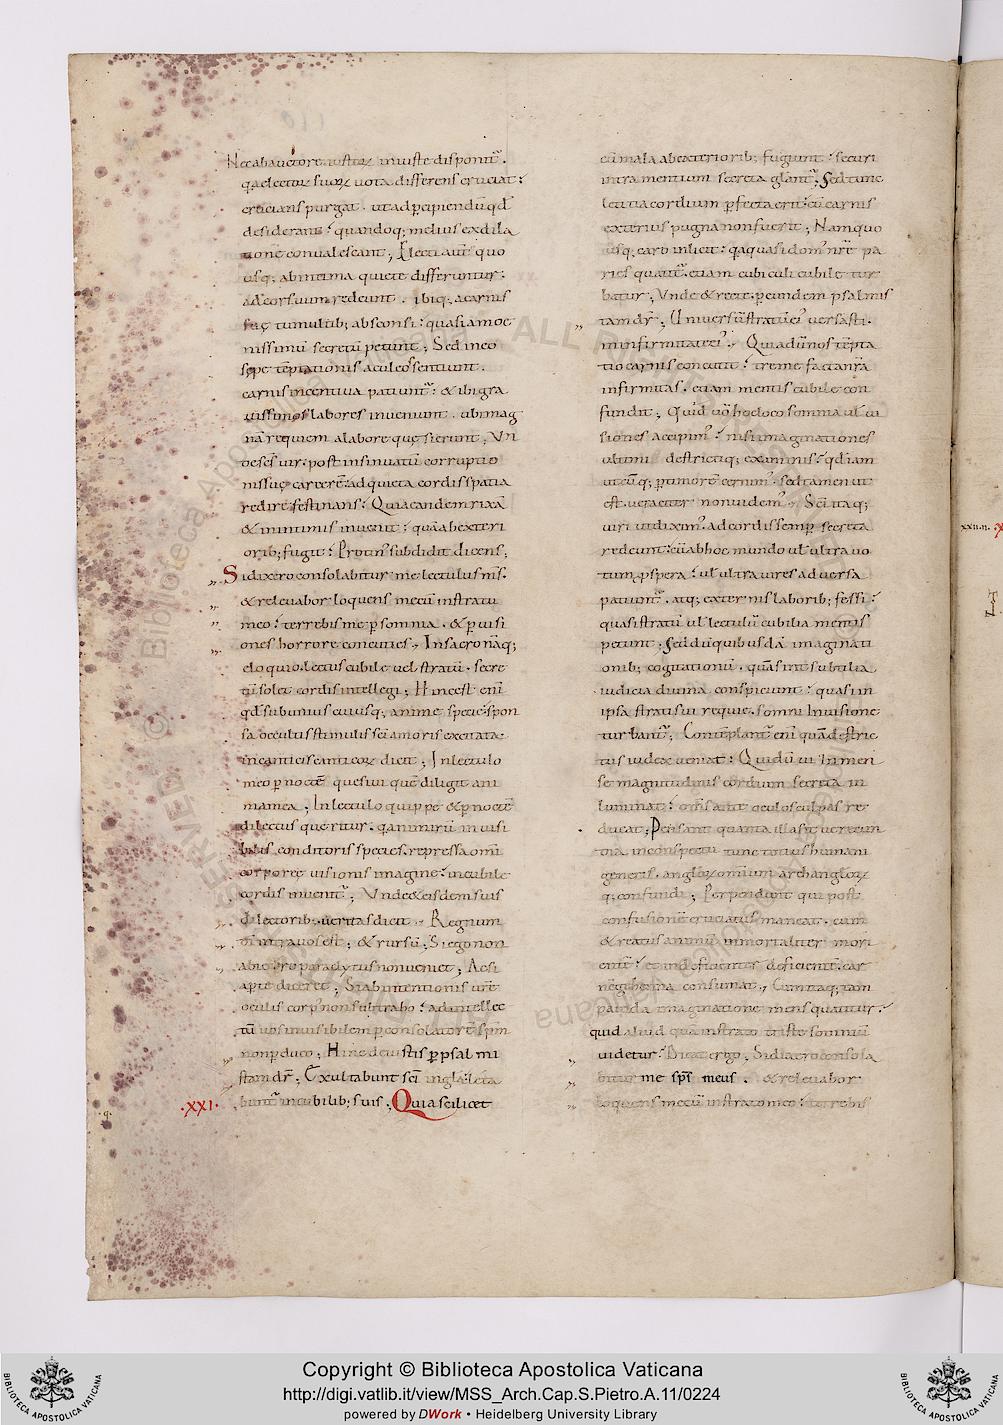 Nec ab auctore iustor iniuste disponit.
q̃a electoꝝ suoꝝ uota differens cruciat:
crucians purgat. ut ad p̲cipiendũ qd̃
desiderant: quandoq; melius ex dila
tione conualescant; Electi aut̃ quo
usq; ab intima quiete differuntur:
ad cor suum redeunt. ibiq; a carnis
suę tumultib; absconsi: quasi amoe
nissimũ secretũ petunt; Sed in eo
sępe tẽptationis aculeos sentiunt.
carnis incentiua patiunt̃: & ibi gra
uissimos labores inueniunt. ubi mag
nã requiem a labore quęsierunt; Vn
de scs̃ uir. post insinuatũ corruptio
nis suę carcerẽ: ad quieta cordis spatia
redire festinans: Quia eandem rixã
& in intimis inuenit: quã ab exteri
orib; fugit: Protin᾽ subdidit dicens;
Si dixero consolabitur me lectulus m̃s.
& releuabor loquens mecũ in stratu
meo: terrebis me p̲ somnia. & p̲ uisi
ones horrore concuties. In sacro nãq;
eloquio. lectus cubile uel stratũ. secre
tũ solet cordis intellegi; Hinc est eni
qd̃ sub unius cuiusq; anime specie. spon
sa occultis stimulis sc̃i amoris excitata
in canticis canticoꝝ dicit; In lectulo
meo p̲ noctẽ quesiui quẽ diligit ani
ma mea; In lectulo quippe & p̲ noctẽ
dilectus queritur. q̃a nimirũ inuisi
bilis conditoris species. repressa omi
corporeę uisionis imagine: in cubile
cordis inuenit̃; Vnde & eisdem suis
dilectorib; ueritas dicit. Regnum
di intra uos est; & rursũ; Si ego non
abiero paraclytus non ueniet; Ac si
ap̲te diceret; Si ab intentionis ur̃e
oculis corp᾽ non subtraho: ad intellec
tũ uos inuisibilem p̲ consolatorẽ sp̃m
non p̲duco; Hinc de iustis p̲ psalmi
stam dr̃; Exultabunt sc̃i in gla. leta
bunt̃ in cubilib; suis; Quia scilicet
·XXI·
cũ mala ab exteriorib; fugiunt: securi
intra mentium secreta glant̃; Sed tunc
letitia cordium p̲fecta erit: cũ carnis
exterius pugna non fuerit; Nam quo
usq; caro inlicit: q̃a quasi dom᾽ nr̃e pa
ries quatit̃: etiam cubiculi cubile tur
batur; Vnde & recte p̲ eundem psalmis
tam dr̃; Uniuersũ stratũ ei᾽ uersasti.
in infirmitate ei᾽. Quia dũ nos tẽpta
tio carnis concutit: tremefacta nr̃a
infirmitas. etiam mentis cubile con
fundit; Quid uo hoc loco somnia ul̃ ui
siones accipim᾽: nisi imaginationes
ultimi districtiq; examinis: qd̃ iam
utcũq; p̲ timorẽ cernim᾽. sed tamen ut
est. ueraciter non uidem᾽. Sc̃i itaq;
uiri ut dixim᾽. ad cordis semp̲ secreta
redeunt: cũ ab hoc mundo ul̃ ultra uo
tum p̲spera: ul̃ ultra uires aduersa
patiunt̃. atq; externis laborib; fessi:
quasi stratũ ul̃ lectulũ cubilia mentis
petunt; Sed dũ quibusdã imaginati
onib; cogitationũ. quã sint subtilia
iudicia diuina conspiciunt: quasi in
ipsa strati sui requie. somni in uisione
turbant̃; Contẽplant̃ eni quã distric
tus iudex ueniat: Qui dũ ui inmen
se magnitudinis cordium secreta in
luminat: oms̃ ante oculos culpas re
ducat; Pensant quanta illa sit uerecun
dia in conspectu tunc totius humani
generis. angloꝝ omium archangloꝝ
q; confundi; Perpendunt qui post
confusionẽ cruciatus maneat. cum
& reatus animũ inmortaliter mori
entẽ: et indeficientẽs deficientẽ. car
nẽ gehenna consumat. Cum itaq; tam
pauida imaginatione mens quatitur:
quid aliud quã in strato triste somniũ
uidetur: Dicat ergo; Si dixero consola
bitur me sps̃ meus. & releuabor
loquens mecũ in strato meo: terrebis
Copyright © Biblioteca Apostolica Vaticana
http://digi.vatlib.it/view/MSS_Arch.Cap.S.Pietro.A.11/0224
powered by DWork • Heidelberg University Library
BIBLIOTECA APOSTOLICA VATICANA
BIBLIOTECA APOSTOLICA VATICANA